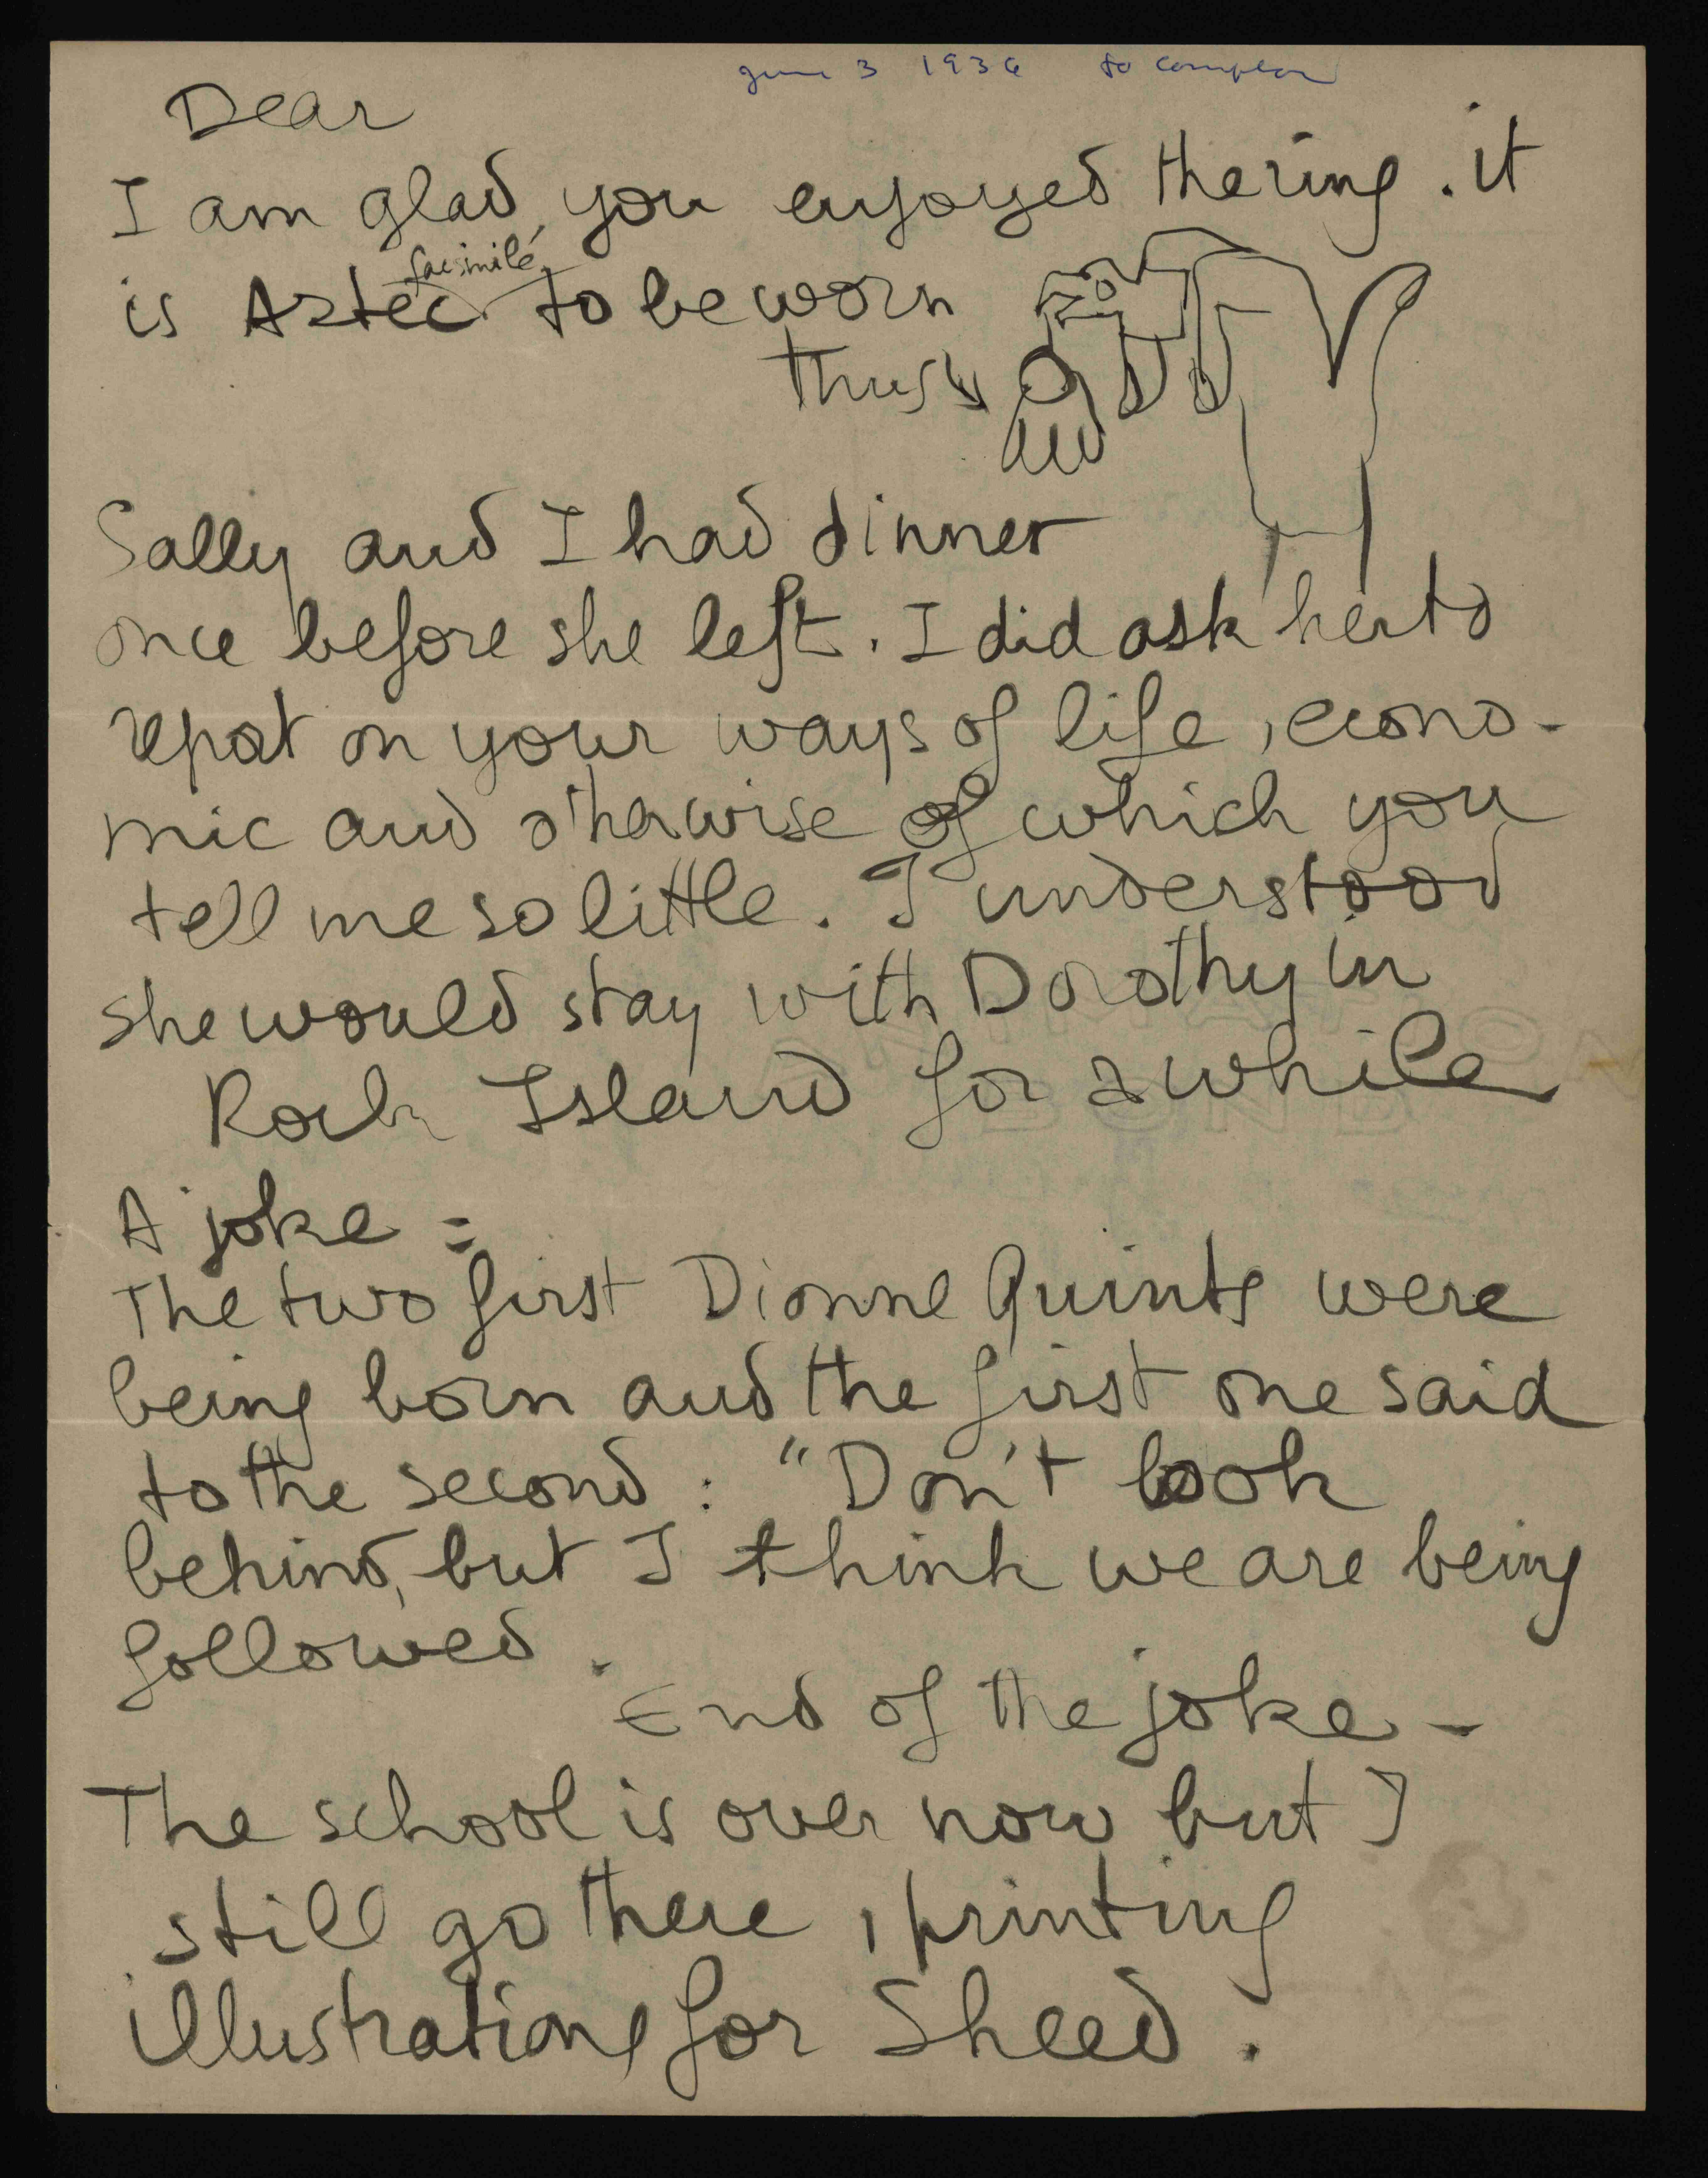 june 3 1936 to Compton
Dear
I am glad you enjoyed the ring. it
facsimilé
is Aztec to be worn
thus
Sally and I had dinner
once before she left. I did ask her to
repot on your ways of life, econo-
mic and otherwise of which you
tell me so little. I understood
she would stay with Dorothy in
Rock Island for a while
A joke =
The two first Dionne Quints were
being born and the first one said
to the second : "Don't look
behind, but I think we are being
followed.
End of the joke -
The school is over now but I
still go there, printing
illustrations for Sheed.